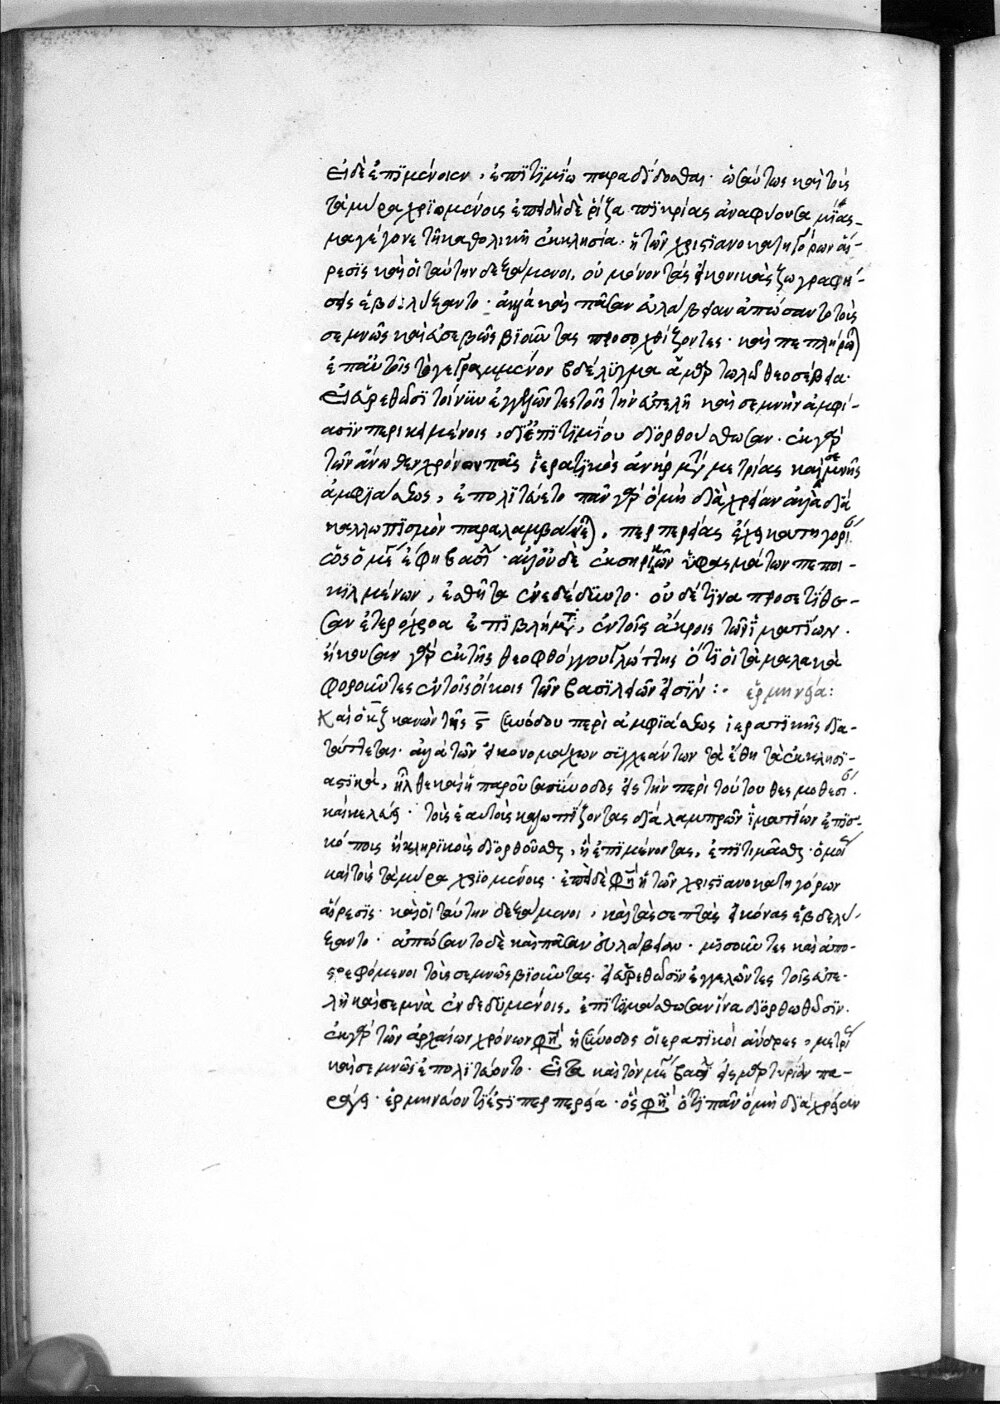 εἰ δὲ ἐπιμένοιεν, ἐπιτιμίω παραδίδοσθαι· ὡσαύτως καὶ τοὺς
τὰ μύρα χριωμένοις ἐπειδὴ δὲ ῥίζα πικρίας ἀναφύουσα μίας-
μα γέγονε τῆ καθολικῆ ἐκκλησία· ἡ τῶν χριστιανοκατηγόρων αἵ-
ρεσις καὶ οἱ ταύτην δεξάμενοι, οὐ μόνον τὰς εἰκονικὰς ζωγραφή-
σεις ἐβδελύξαντο· ἀλλὰ καὶ πᾶσαν εὐλάβειαν ἀπώσαντο τοὺς
σεμνῶς καὶ εὐσεβῶς βιοῦντας προσοχθίζοντες· καὶ πεπλήρω)
ἐπ' αὐτοῖς τὸ γεγραμμένον βδέλυγμα ἁμαρτωλῶ θεοσέβεια·
Εἰ εὑρεθῶσι τοίνυν ἐγγελῶντες τοῖς τὴν εὐτελῆ καὶ σεμνὴν ἀμφί-
ασιν περικειμένοις, δι' ἐπιτιμίου διορθούσθωσαν· ἐκ γὰρ
τῶν ἄνωθεν χρόνων πᾶς ἱερατικὸς ἀνὴρ μετὰ μετρίας καὶ σεμνῆς
ἀμφιάσεως, ἐπολιτεύετο πᾶν γὰρ ὃ μὴ διὰ χρείαν ἀλλὰ διὰ
καλλωπισμὸν παραλαμβάνε), περπερείας ἔχει κατηγορί
ὡς ὁ μέγας ἔφη βασί· ἀλλ' οὐδὲ ἐκ σηρικῶν ὑφασμάτων πεποι-
κιλμένων, ἐσθῆτα ἐνεδέδυτο· οὐδέ τινα προσετίθε-
σαν ἑτερόχροα ἐπιβλήματα, ἐν τοῖς ἄκροις τῶν ἱματίων·
ἤκουσαν γὰρ ἐκ τῆς θεοφθόγγου γλώττης ὅτι οἱ τὰ μαλακὰ
φοροῦντες ἐν τοῖς οἴκοις τῶν βασιλείων εἰσίν :· ἑρμηνεία:
Καὶ ὁ κζ κανὼν τῆς ς συνόδου περὶ ἀμφιάσεως ἱερατικῆς δια-
τάττεται· ἀλλὰ τῶν εἰκονομάχων συγχεάντων τὰ ἔθη τὰ ἐκκλησι-
αστικὰ, ἦλθε καὶ ἡ παροῦσα σύνοδος εἰς τὴν περὶ τούτου θεσμοθεσί·
καὶ κελεύει· τοὺς ἑαυτοὺς καλλωπίζοντας διὰ λαμπρῶν ἱματίων ἐπισ-
κόπους ἢ κληρικοὺς διορθοῦσθαι, ἢ ἐπιμένοντας, ἐπιτιμᾶσθαι· ὁμοί
καὶ τοὺς τὰ μύρα χριομένοις· ἐπεὶ δὲ φησὶ ἡ τῶν χριστιανοκατηγόρων
αἵρεσις· καὶ οἱ ταύτην δεξάμενοι, καὶ τὰς σεπτὰς εἰκόνας ἐβδελύ-
ξαντο· ἀπώσαντο δὲ καὶ πᾶσαν εὐλάβειαν· μισοῦντες καὶ ἀπο-
στρεφόμενοι τοὺς σεμνῶς βιοῦντας· εἰ εὑρεθῶσιν ἐγγελῶντες τοῖς εὐτε-
λῆ καὶ σεμνὰ ἐνδεδυμένοις, ἐπιτιμάσθωσαν ἵνα διορθωθῶσιν·
ἐκ γὰρ τῶν ἀρχαίων χρόνων φησὶ ἡ σύνοδος οἱ ἱερατικοὶ ἄνδρες, μετρί
καὶ σεμνῶς ἐπολιτεύοντο· Εἶτα καὶ τὸν μέγαν βασί εἰς μαρτυρίαν πα-
ράγει· ἑρμηνεύοντι τί ἐστι περπερεία· ὅς φησι ὅτι πᾶν ὃ μὴ διὰ χρείαν